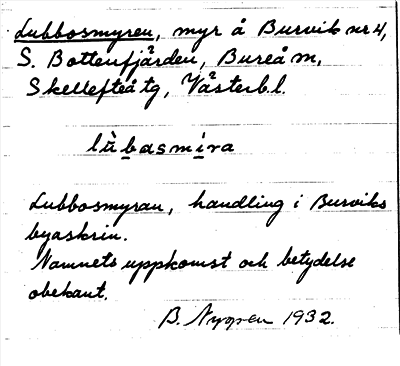 Lubbosmyren, myr å Burvik nr 4,
S. Bottenfjärden, Bureå sn,
Skellefteå tg, Västerb.l.
lùbasmira
Lubbosmyran, handling i Burviks
byaskrin.
Namnets uppkomst och betydelse
obekant.
B. Nygren 1932.